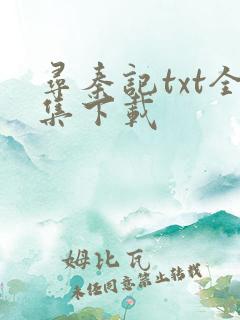 尋秦記txt全
集下載
姆比瓦
未经同意禁止转载